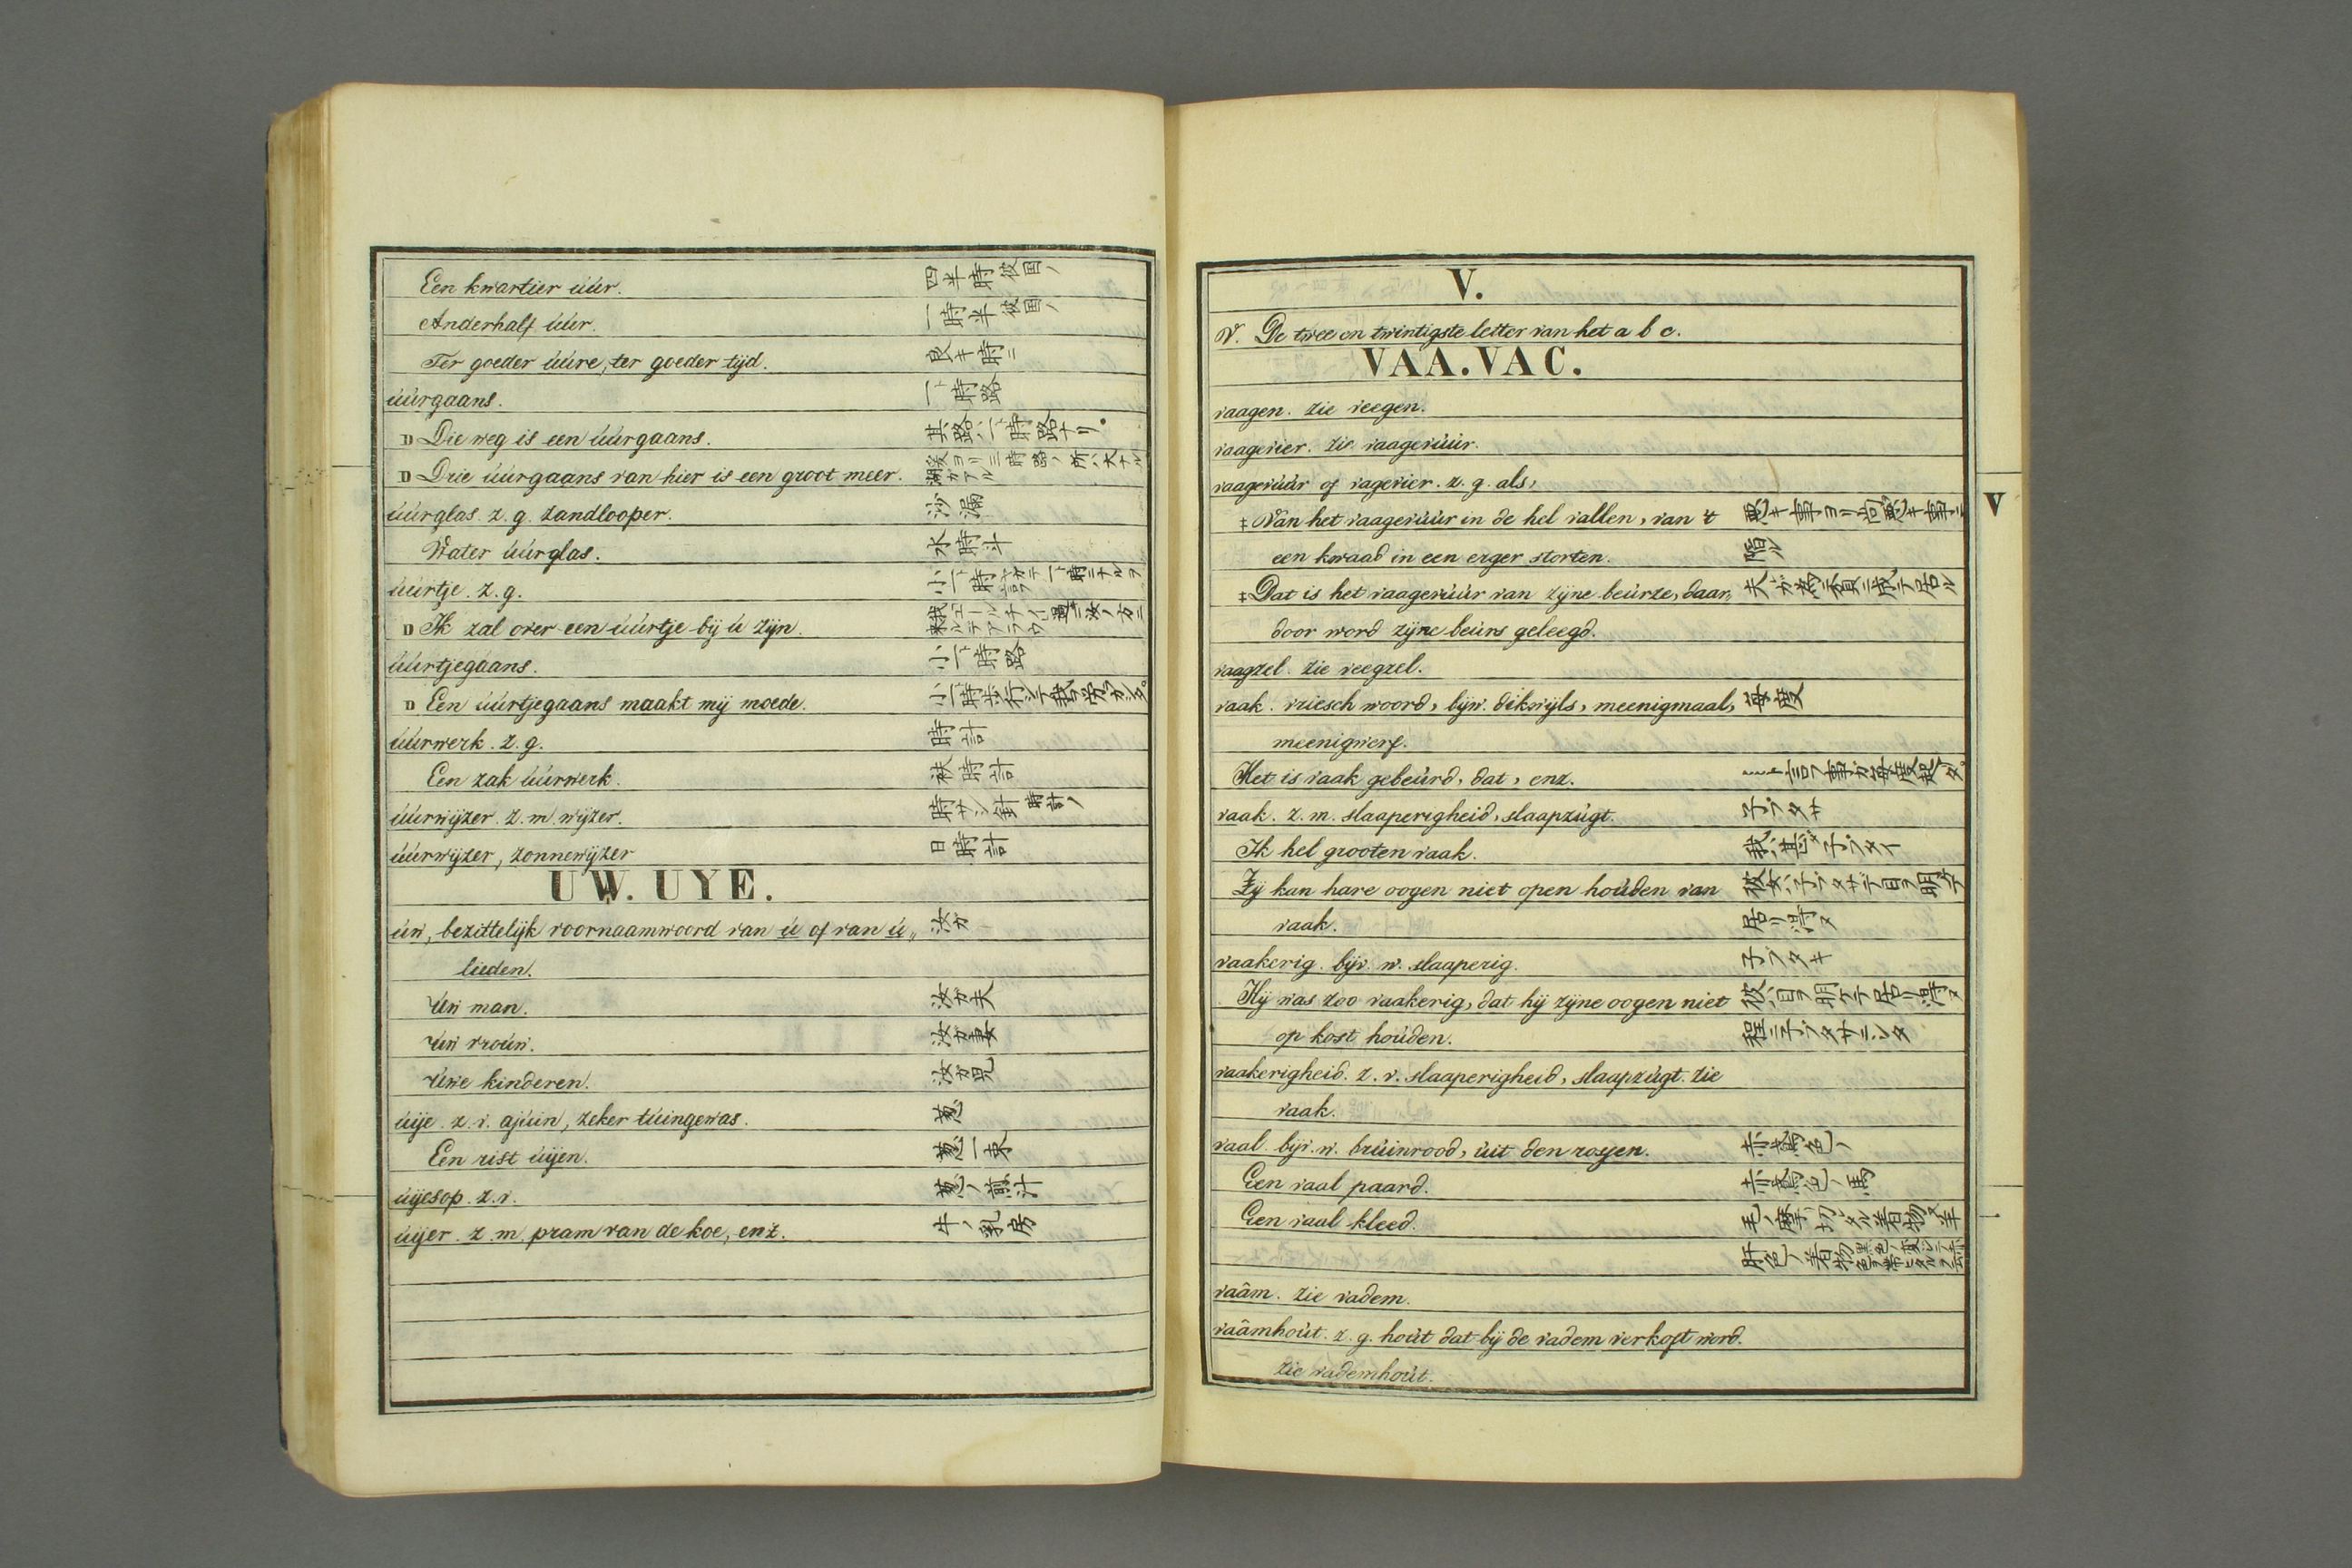 Een kwartier úúr. 四半時 彼国ノ
Anderhalf úúr. 一時半 彼国ノ
Ter goeder úúre, ter goeder tijd. 良キ時ニ
úúrgaans. 一ト時路
D Die weg is een úúrgaans. 其路ハ一ト時路ナリ。
D Drie úúrgaans van hier is een groot meer. 爰ヨリ三時路ノ所ハ大ナル湖ガアル
úúrglas. z. g. zandlooper. 沙漏
Water úúrglas. 水時斗
úúrtje. z. g. 小一ト時
D Ik zal over een úúrtje bij ú zijn.
úúrtjegaans. 小一ト時路
D Een úúrtjegaans maakt mij moede.
úúrwerk. z. g. 時計
Een zak úúrwerk. 袂時計
úúrwijzer. z. m. wijzer. 時サシ針 時計ノ
úúrwijzer, zonnewijzer 日時計
UW. UYE.
úw, bezittelijk voornaamwoord van ú of van ú„ 汝ガ
lieden.
Uw man. 汝ガ夫
Uw vroúw. 汝ガ妻
Uwe kinderen. 汝ガ児
uije. z. v. ajúin, zeker túingewas. 葱
Een rist úijen. 葱一束
úijesop. z. v. 葱ノ煎汁
úijer. z. m. pram van de koe, enz. 牛ノ乳房
V.
V. De twee en twintigste letter van het a b c.
VAA. VAC.
vaagen. zie veegen.
vaagevier. zie vaagevúúr.
vaagevúúr of vagevier. z. g. als,
‡ Van het vaagevúúr in de hel vallen, van 't 悪キ事ヨリ尚悪キ事ニ
een kwaad in een erger storten. 陥ル
‡ Dat is het vaagevúúr van zijne beúrze, daar„ 夫ガ為ニ貧ニ成テ居ル
door word zijne beúrs geleegd.
vaagzel. zie veegzel.
vaak. vriesch woord, bijw. dikwijls, meenigmaal, 毎度
meenigwerf.
Het is vaak gebeúrd, dat, enz. ト言フ事ガ毎度起ツタ。
vaak. z. m. slaaperigheid, slaapzúgt. 子ブタサ
Ik heb grooten vaak. 我ハ甚ダ子ブタイ
Zij kan hare oogen niet open hoúden van 彼女ハ子ブタサデ目ヲ明ケテ
vaak. 居リ得ヌ
vaakerig. bijv. w. slaaperig. 子ブタキ
Hij was zoo vaakerig, dat hij zijne oogen niet 彼ハ目ヲ明ケテ居リ得ヌ
op kost hoúden. 程ニ子ブタサニシタ
vaakerigheid. z. v. slaaperigheid, slaapzúgt. zie
vaak.
vaal. bijv. w. brúinrood, úit den rosjen. 赤鳶色ノ
Een vaal paard. 赤鳶色ノ馬
Een vaal kleed. 毛ノ摩リ切レタル着物 又羊
肝色ノ着物
vaâm. zie vadem.
vaâmhoút. z. g. hoút dat bij de vadem verkoft word.
zie vademhoút.
V